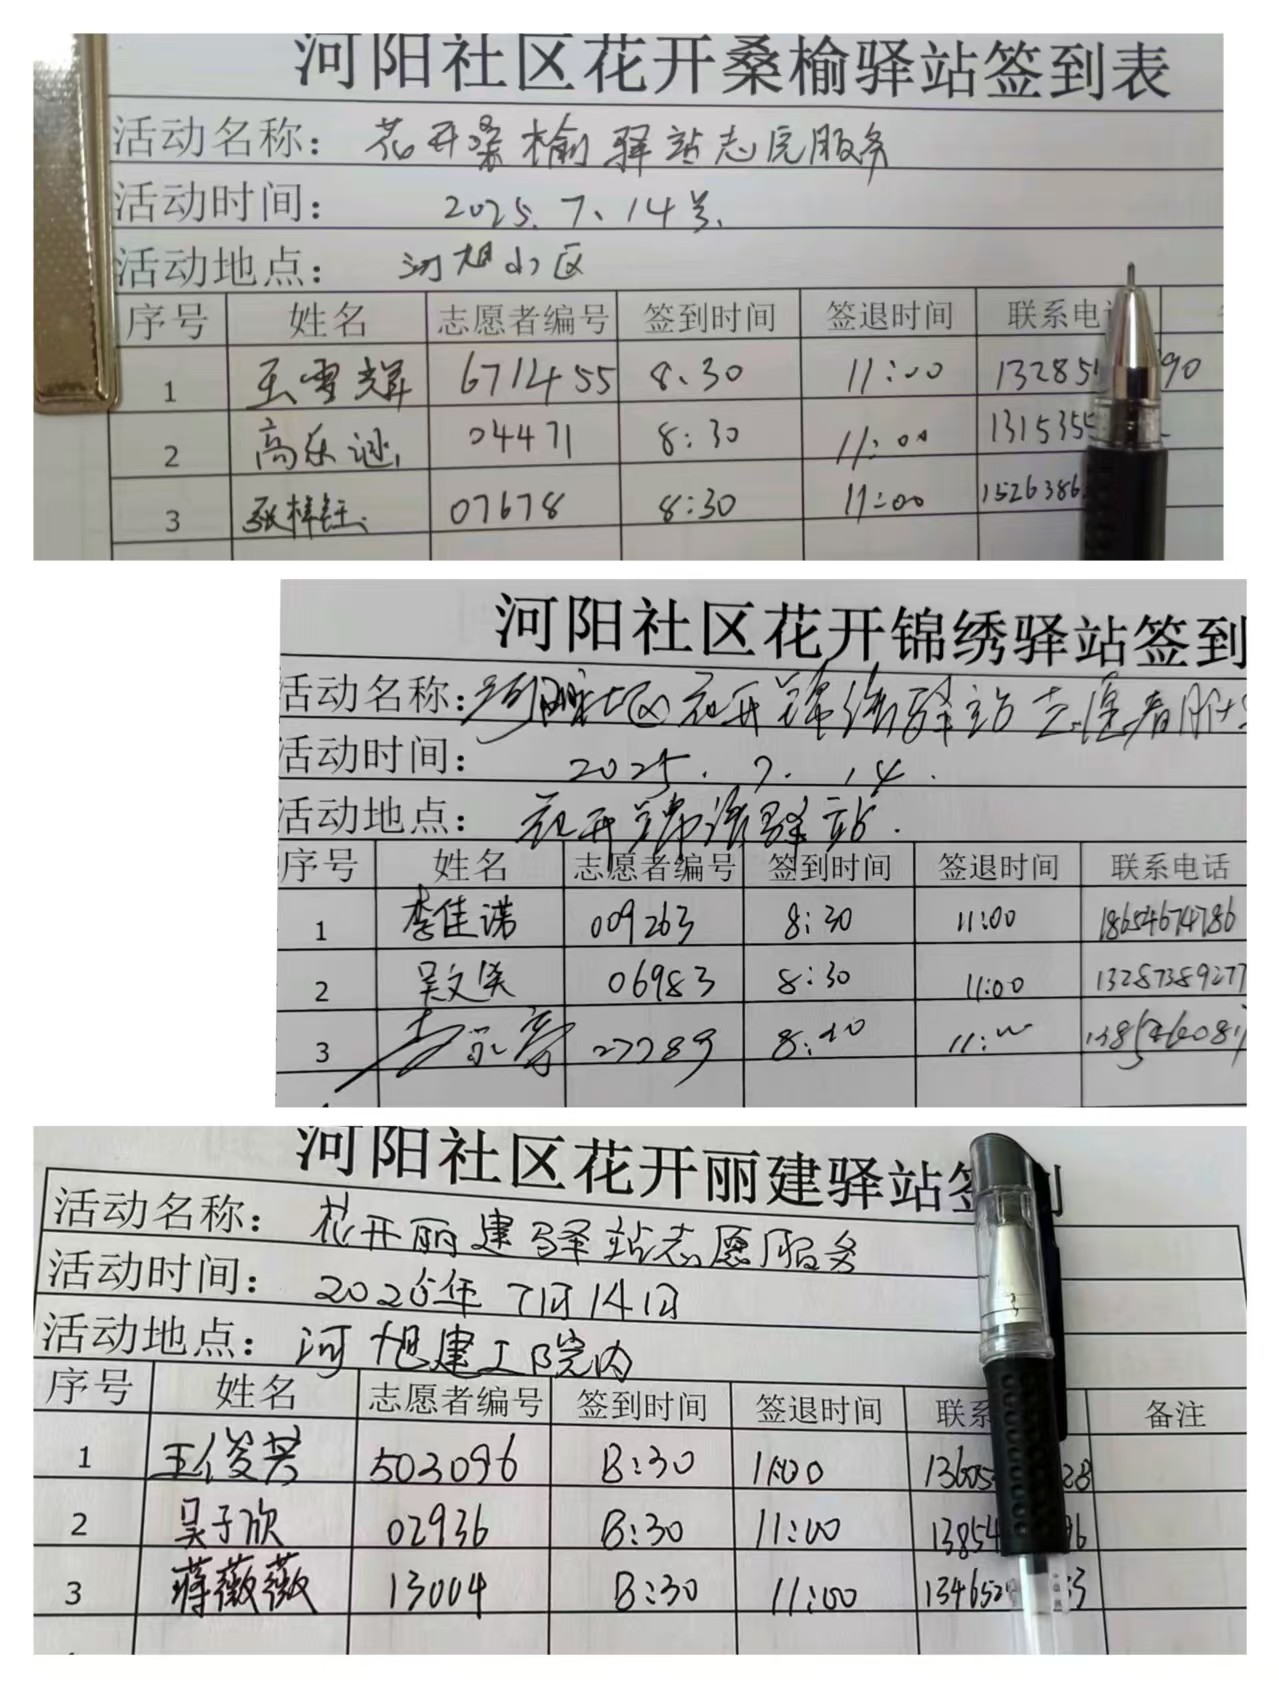 河阳社区花开桑榆驿站签到表
活动名称： 花开桑榆驿站志愿服务
活动时间： 2025.7、14号.
活动地点： 河旭小区
序号 姓名 志愿者编号 签到时间 签退时间 联系电
1 王雪辉 6711455 8:30 11:00 13285 90
2 高乐 04471 8:30 11:00 1315355
3 张梓钰 07678 8:30 11:00 1526386
河阳社区花开锦绣驿站签到
活动名称： 河阳社区花开锦绣驿站志愿者服
活动时间： 2025.7.14.
活动地点： 花开锦绣驿站.
序号 姓名 志愿者编号 签到时间 签退时间 联系电话
1 李佳诺 009263 8:30 11:00 18654674786
2 吴文 06983 8:30 11:00 13287389277
3 27789
河阳社区花开丽建驿站签到
活动名称： 花开丽建驿站志愿服务
活动时间： 2025年7月14日
活动地点： 河旭建工院内
序号 姓名 志愿者编号 签到时间 签退时间 联系 备注
1 王俊芳 503096 8:30 11:00 13605 28
2 吴于欣 02936 8:30 11:00 13854 96
3 蒋薇薇 13004 8:30 11:00 134652 33